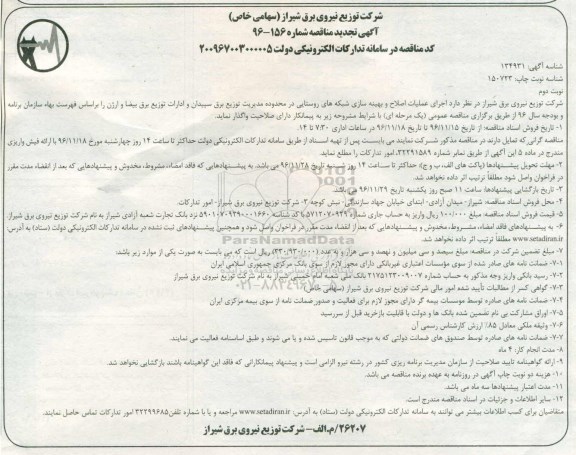 شرکت توزیع نیروی برق شیراز (سهامی خاص)
آگهی تجدید مناقصه شماره ۱۵۶-۹۶
کد مناقصه در سامانه تدارکات الکترونیکی دولت ۲۰۰۹۶۷۰۰۳۰۰۰۰۰۵
شناسه آگهی: ۱۳۴۹۳۱
شناسه نوبت چاپ: ۱۵۰۷۲۳
نوبت دوم
شرکت توزیع نیروی برق شیراز در نظر دارد اجرای عملیات اصلاح و بهینه سازی شبکه های روستایی در محدوده مدیریت توزیع برق سپیدان و ادارات توزیع برق بیضا و ارژن را براساس فهرست بهاء سازمان برنامه
و بودجه سال ۹۶ از طریق برگزاری مناقصه عمومی (یک مرحله ای) با شرایط مشروحه زیر به پیمانکار دارای صلاحیت واگذار نماید.
۱- تاریخ فروش اسناد مناقصه: از تاریخ ۹۶/۱۱/۱۵ تا ۹۶/۱۱/۱۸ در ساعات اداری ۷:۳۰ تا ۱۴
مناقصه گرانی که تمایل دارند در مناقصه مذکور شرکت نمایند می بایست پس از تهیه اسناد از طریق سامانه تدارکات الکترونیکی دولت حداکثر تا ساعت ۱۴ روز چهارشنبه مورخ ۹۶/۱۱/۱۸ با ارائه فیش واریزی
مندرج در ماده ۵ این آگهی از طریق نمابر شماره ۳۲۲۹۱۵۸۹ امور تدارکات را مطلع نماید.
۲- مهلت تحویل پیشنهادها (پاکت های الف، ب و ج): حداکثر تا ساعت ۱۴ روز شنبه تاریخ ۹۶/۱۱/۲۸ می باشد. به پیشنهادهایی که فاقد امضاء، مشروط، مخدوش و پیشنهادهایی که بعد از انقضاء مدت مقرر
در فراخوان واصل شود مطلقاً ترتیب اثر داده نخواهد شد.
۳- تاریخ بازگشایی پیشنهادها: ساعت ۱۱ صبح روز یکشنبه تاریخ ۹۶/۱۱/۲۹ می باشد.
۴- محل فروش اسناد مناقصه: شیراز- میدان آزادی- ابتدای خیابان جهاد سازندگی- نبش کوچه ۳- شرکت توزیع نیروی برق شیراز- امور تدارکات.
۵- قیمت فروش اسناد مناقصه: مبلغ ۱۰۰/۰۰۰ ریال واریز به حساب جاری شماره نزد بانک تجارت شعبه آزادی شیراز به نام شرکت توزیع نیروی برق شیراز.
۶- به پیشنهادهای فاقد امضاء، مشروط، مخدوش و پیشنهادهایی که بعد از انقضاء مدت مقرر در فراخوان واصل شود و همچنین پیشنهادهای ثبت نشده در سامانه تدارکات الکترونیکی دولت (ستاد) به آدرس:
www.setadiran.ir مطلقاً ترتیب اثر داده نخواهد شد.
۷- مبلغ تضمین شرکت در مناقصه: مبلغ سیصد و سی میلیون و نهصد و سی هزار و به عدد (۳۳۰/۹۳۰/۰۰۰) ریال است که می بایست به صورت یکی از موارد زیر باشد:
۷-۱- ضمانت نامه های صادر شده از سوی موسسات اعتباری غیربانکی دارای مجوز لازم از سوی بانک مرکزی جمهوری اسلامی ایران
۷-۲- رسید بانکی واریز وجه مذکور به حساب شماره ۲۱۷۵۱۲۳۳۰۹۰۰۷ بانک ملی شعبه امام خمینی شیراز به نام شرکت توزیع نیروی برق شیراز
۷-۳- گواهی کسر از مطالبات تأیید شده امور مالی شرکت توزیع نیروی برق شیراز (سهامی خاص)
۷-۴- ضمانت نامه های صادره توسط موسسات بیمه گر دارای مجوز لازم برای فعالیت و صدور ضمانت نامه از سوی بیمه مرکزی ایران
۷-۵- اوراق مشارکت بی نام تضمین شده بانک ها و دولت با قابلیت بازخرید قبل از سررسید
۷-۶- وثیقه ملکی معادل ۸۵٪ ارزش کارشناس رسمی آن
۷-۷- ضمانت نامه های صادره توسط صندوق های ضمانت دولتی که به موجب قانون تاسیس شده و یا می شوند و طبق اساسنامه فعالیت می نمایند.
۸- مدت انجام کار: ۴ ماه
۹- ارائه گواهینامه تایید صلاحیت از سازمان مدیریت برنامه ریزی کشور در رشته نیرو الزامی است و پیشنهاد پیمانکارانی که فاقد این گواهینامه باشند بازگشایی نخواهد شد.
۱۰- هزینه دو نوبت چاپ آگهی در روزنامه به عهده برنده مناقصه می باشد.
۱۱- مدت اعتبار پیشنهادها سه ماه می باشد.
۱۲- سایر اطلاعات و جزئیات در اسناد مناقصه مندرج است.
متقاضیان برای کسب اطلاعات بیشتر می توانند به سامانه تدارکات الکترونیکی دولت (ستاد) به آدرس: www.setadiran.ir مراجعه و یا با شماره تلفن ۳۲۲۹۹۶۸۵ امور تدارکات تماس حاصل نمایند.
۲۶۲۰۷/م.الف - شرکت توزیع نیروی برق شیراز
ParsNamadData
۰۲۱-۸۸۳۴۹۶۷۰